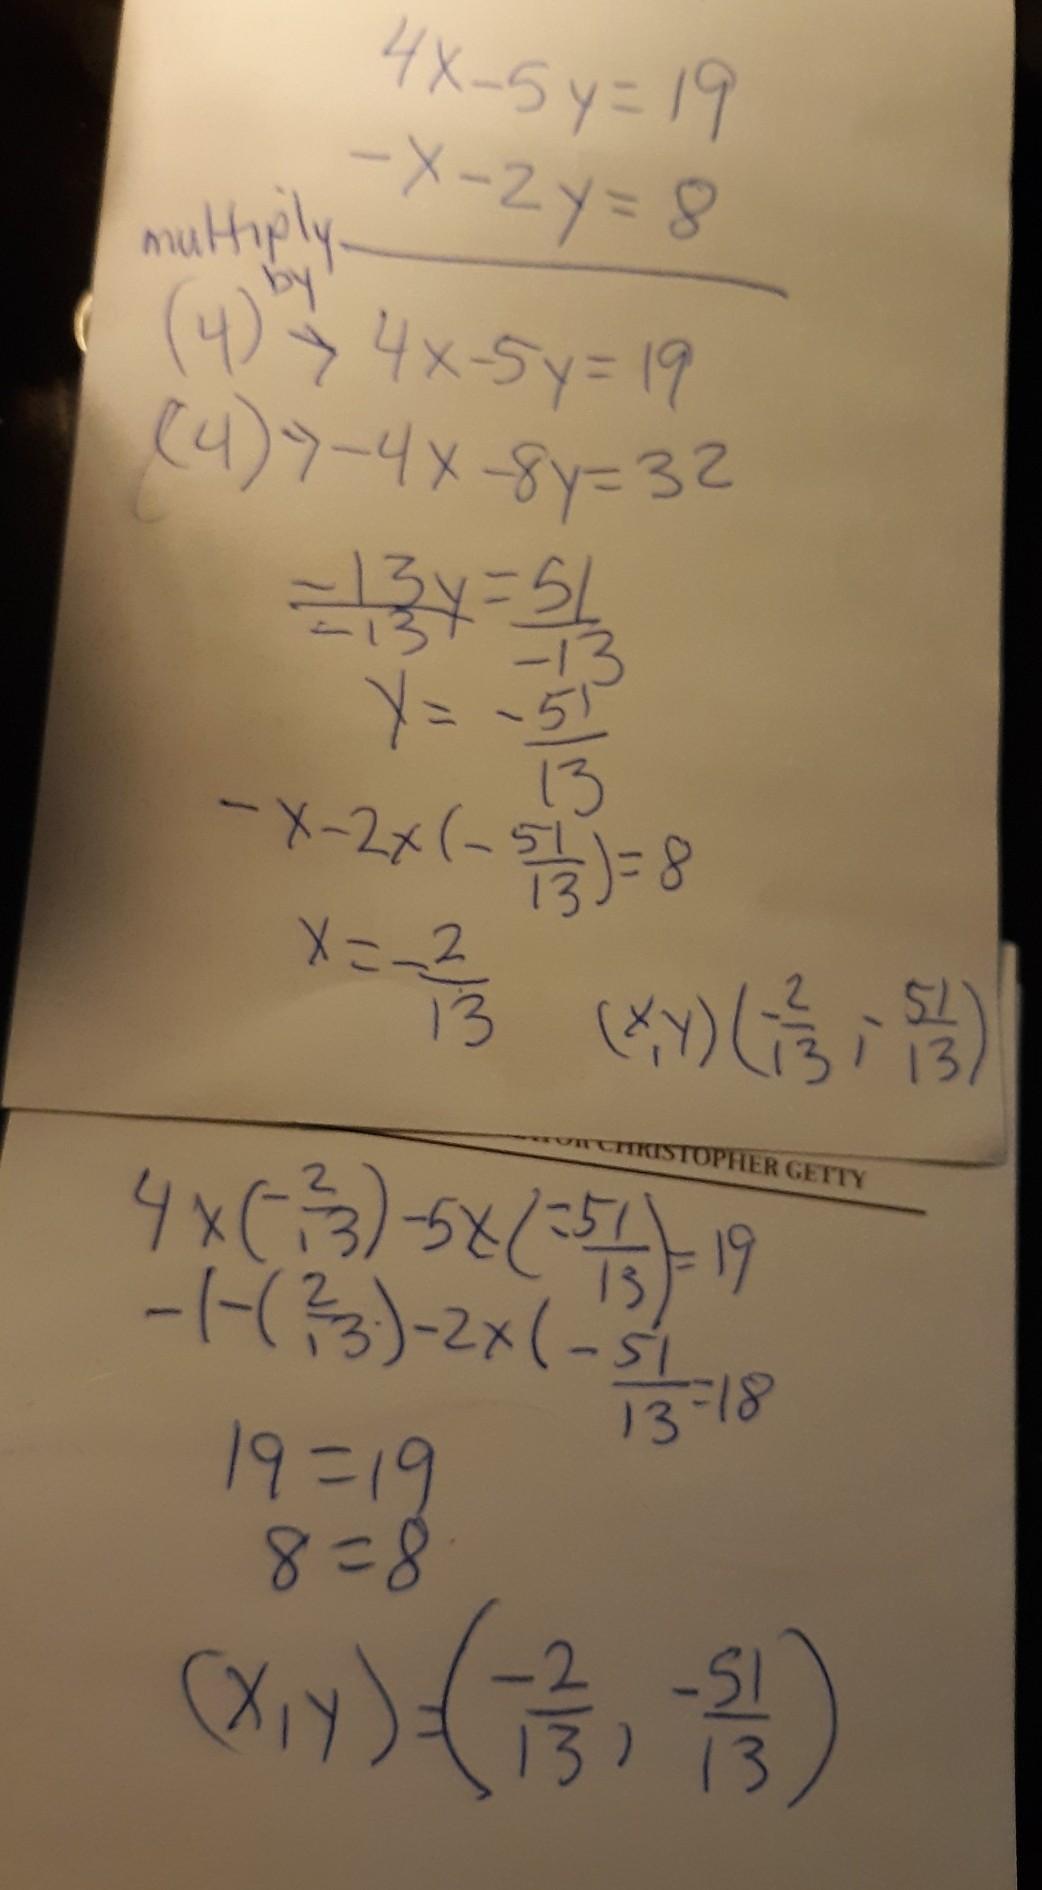 4x-5y=19
-x-2y=8
multiply
by
(4) → 4x-5y=19
(4) → -4x-8y=32
-13y/-13 = 51/-13
y = -51/13
-x-2x(-51/13)=8
x=-2/13
(x,y)(-2/13, -51/13)
CHRISTOPHER GETTY
4x(-2/13)-5x(-51/13)=19
-1-(2/13)-2x(-51/13=18
19=19
8=8
(x,y)=(-2/13, -51/13)